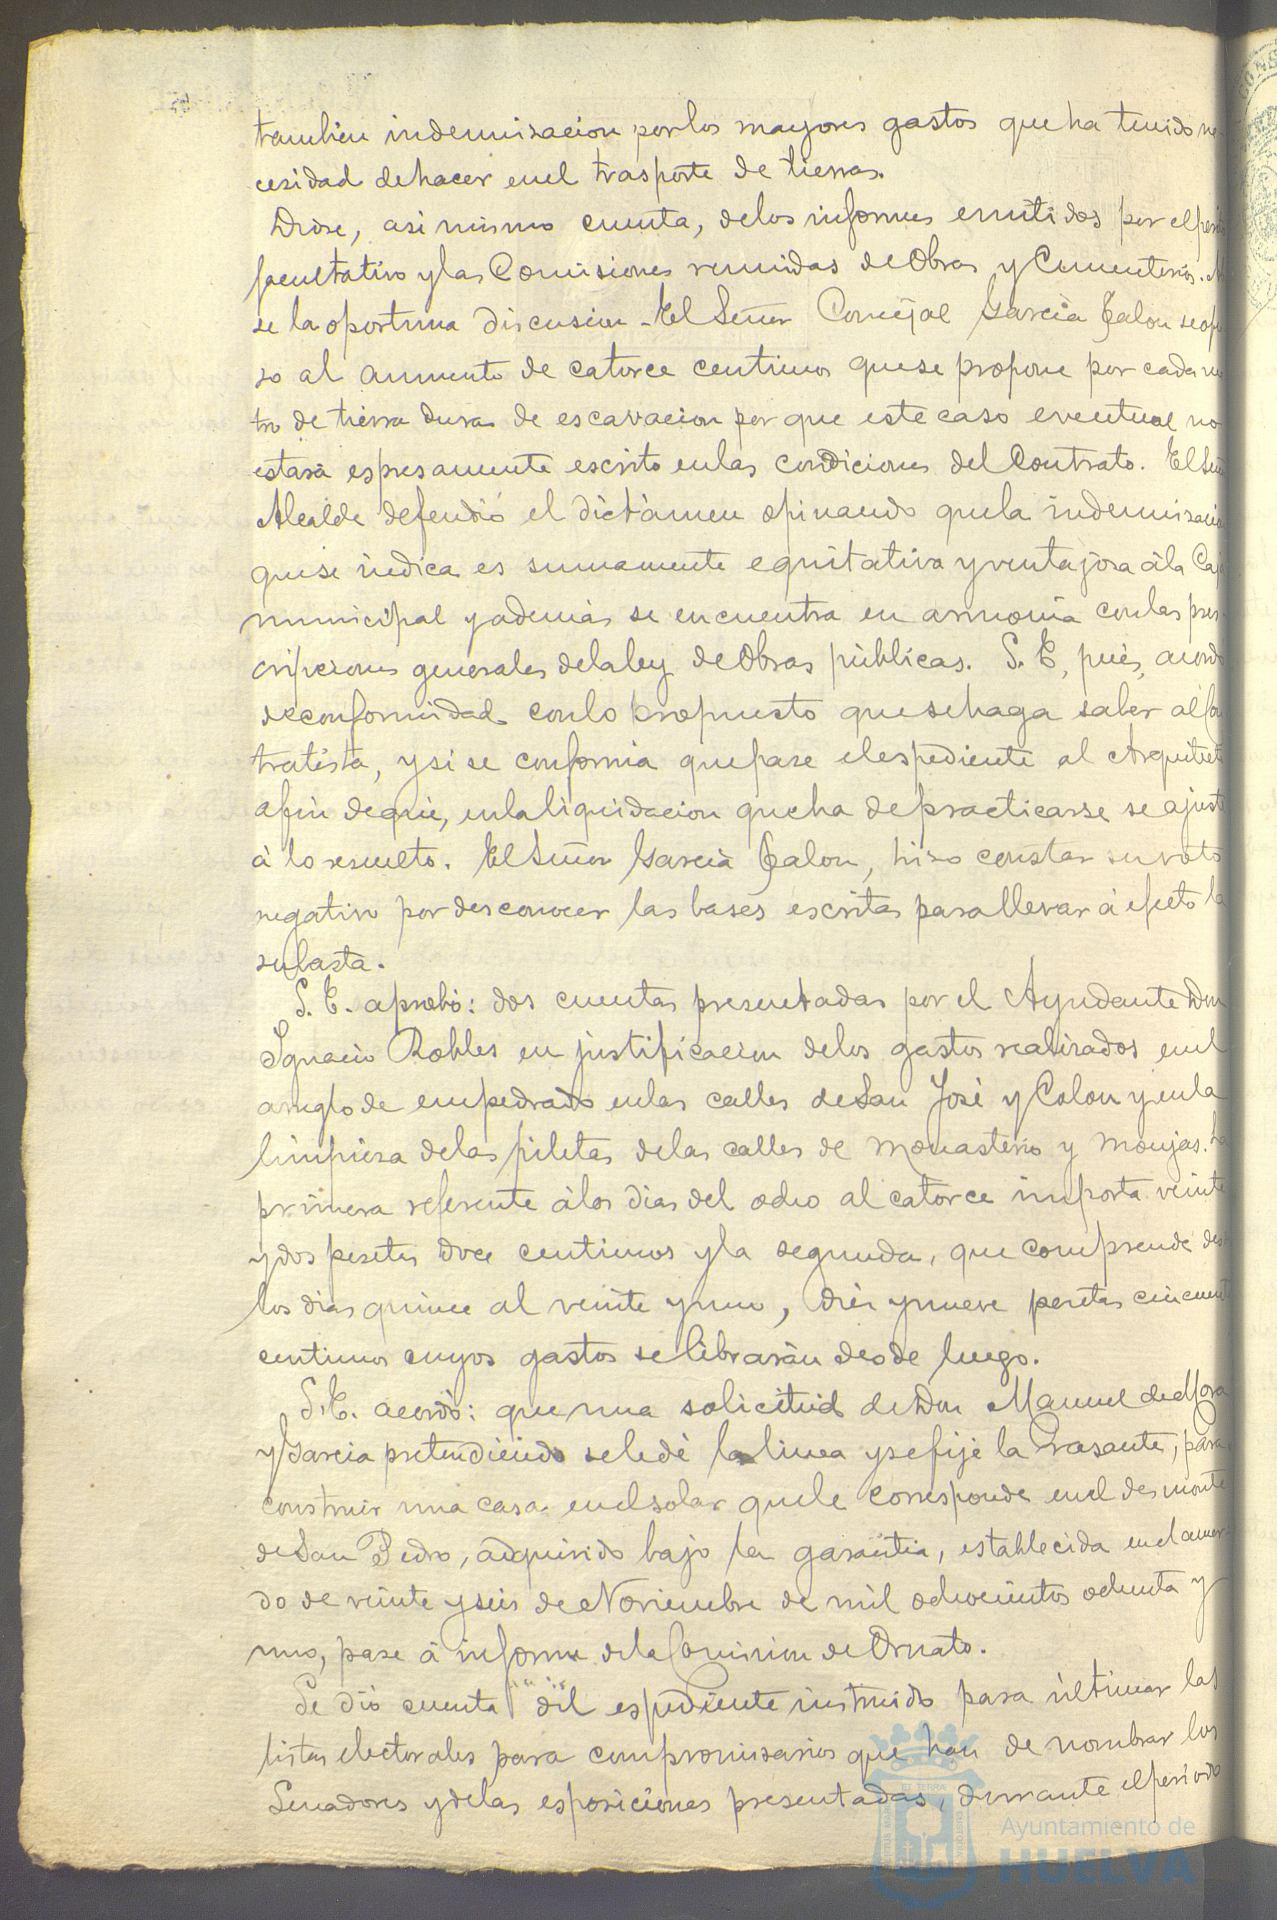 tambien indemnisacion por los mayores gastos que ha tenido ne-
cesidad de hacer en el trasporte de tierras.
Diose, asi mismo cuenta, delos informes emitidos por el perito
facultativo y las Comisiones reunidas de Obras y Cementerios.
se la oportuna discusion - El Señor Concejal Garcia Jalon se opu
so al aumento de catorce centimos que se propone por cada me
tro de tierra dura de escavacion por que este caso eventual no
estará espresamente escrito en las condiciones del Contrato. El Señ
Alcalde defendió el dictámen opinando que la indemnisacio
que se indica es sumamente equitativa y ventajosa á la Caja
municipal y además se encuentra en armonia con las pres-
cripciones generales de la ley de Obras públicas. S. E, pues, acordó
de conformidad con lo propuesto que se haga saber al con
tratista, y si se conforma que pase el espediente al Arquitecto
a fin de que, en la liquidacion que ha de practicarse se ajuste
á lo resuelto. El Señor Garcia Jalon, hizo constar su voto
negativo por desconocer las bases escritas para llevar á efecto la
subasta.
S. E. aprobó: dos cuentas presentadas por el Ayudante Don
Ignacio Robles en justificacion delos gastos realizados en el
arreglo de empedrado en las calles de San José y Colon y en la
limpieza delas piletas delas calles de Monasterio y Monjas. La
primera referente á los dias del ocho al catorce importa veinte
y dos pesetas doce centimos y la segunda, que comprende des
los dias quince al veinte y uno, diez y nueve pesetas cincuent
centimos cuyos gastos se librarán desde luego.
S. E. acordó: que una solicitud de Don Manuel de Mora
y Garcia pretendiendo se le dé la linea y se fije la rasante, para
construir una casa en el solar que le corresponde en el desmonte
de San Pedro, adquirido bajo la garantia, establecida en el acuer-
do de veinte y seis de Noviembre de mil ochocientos ochenta y
uno, pase á informe de la Comision de Ornato.
Se dió cuenta del espediente instruido para últimar las
listas electorales para compromisarios que han de nombrar los
Senadores y delas esposiciones presentadas, durante el periodo
Ayuntamiento de
HUELVA